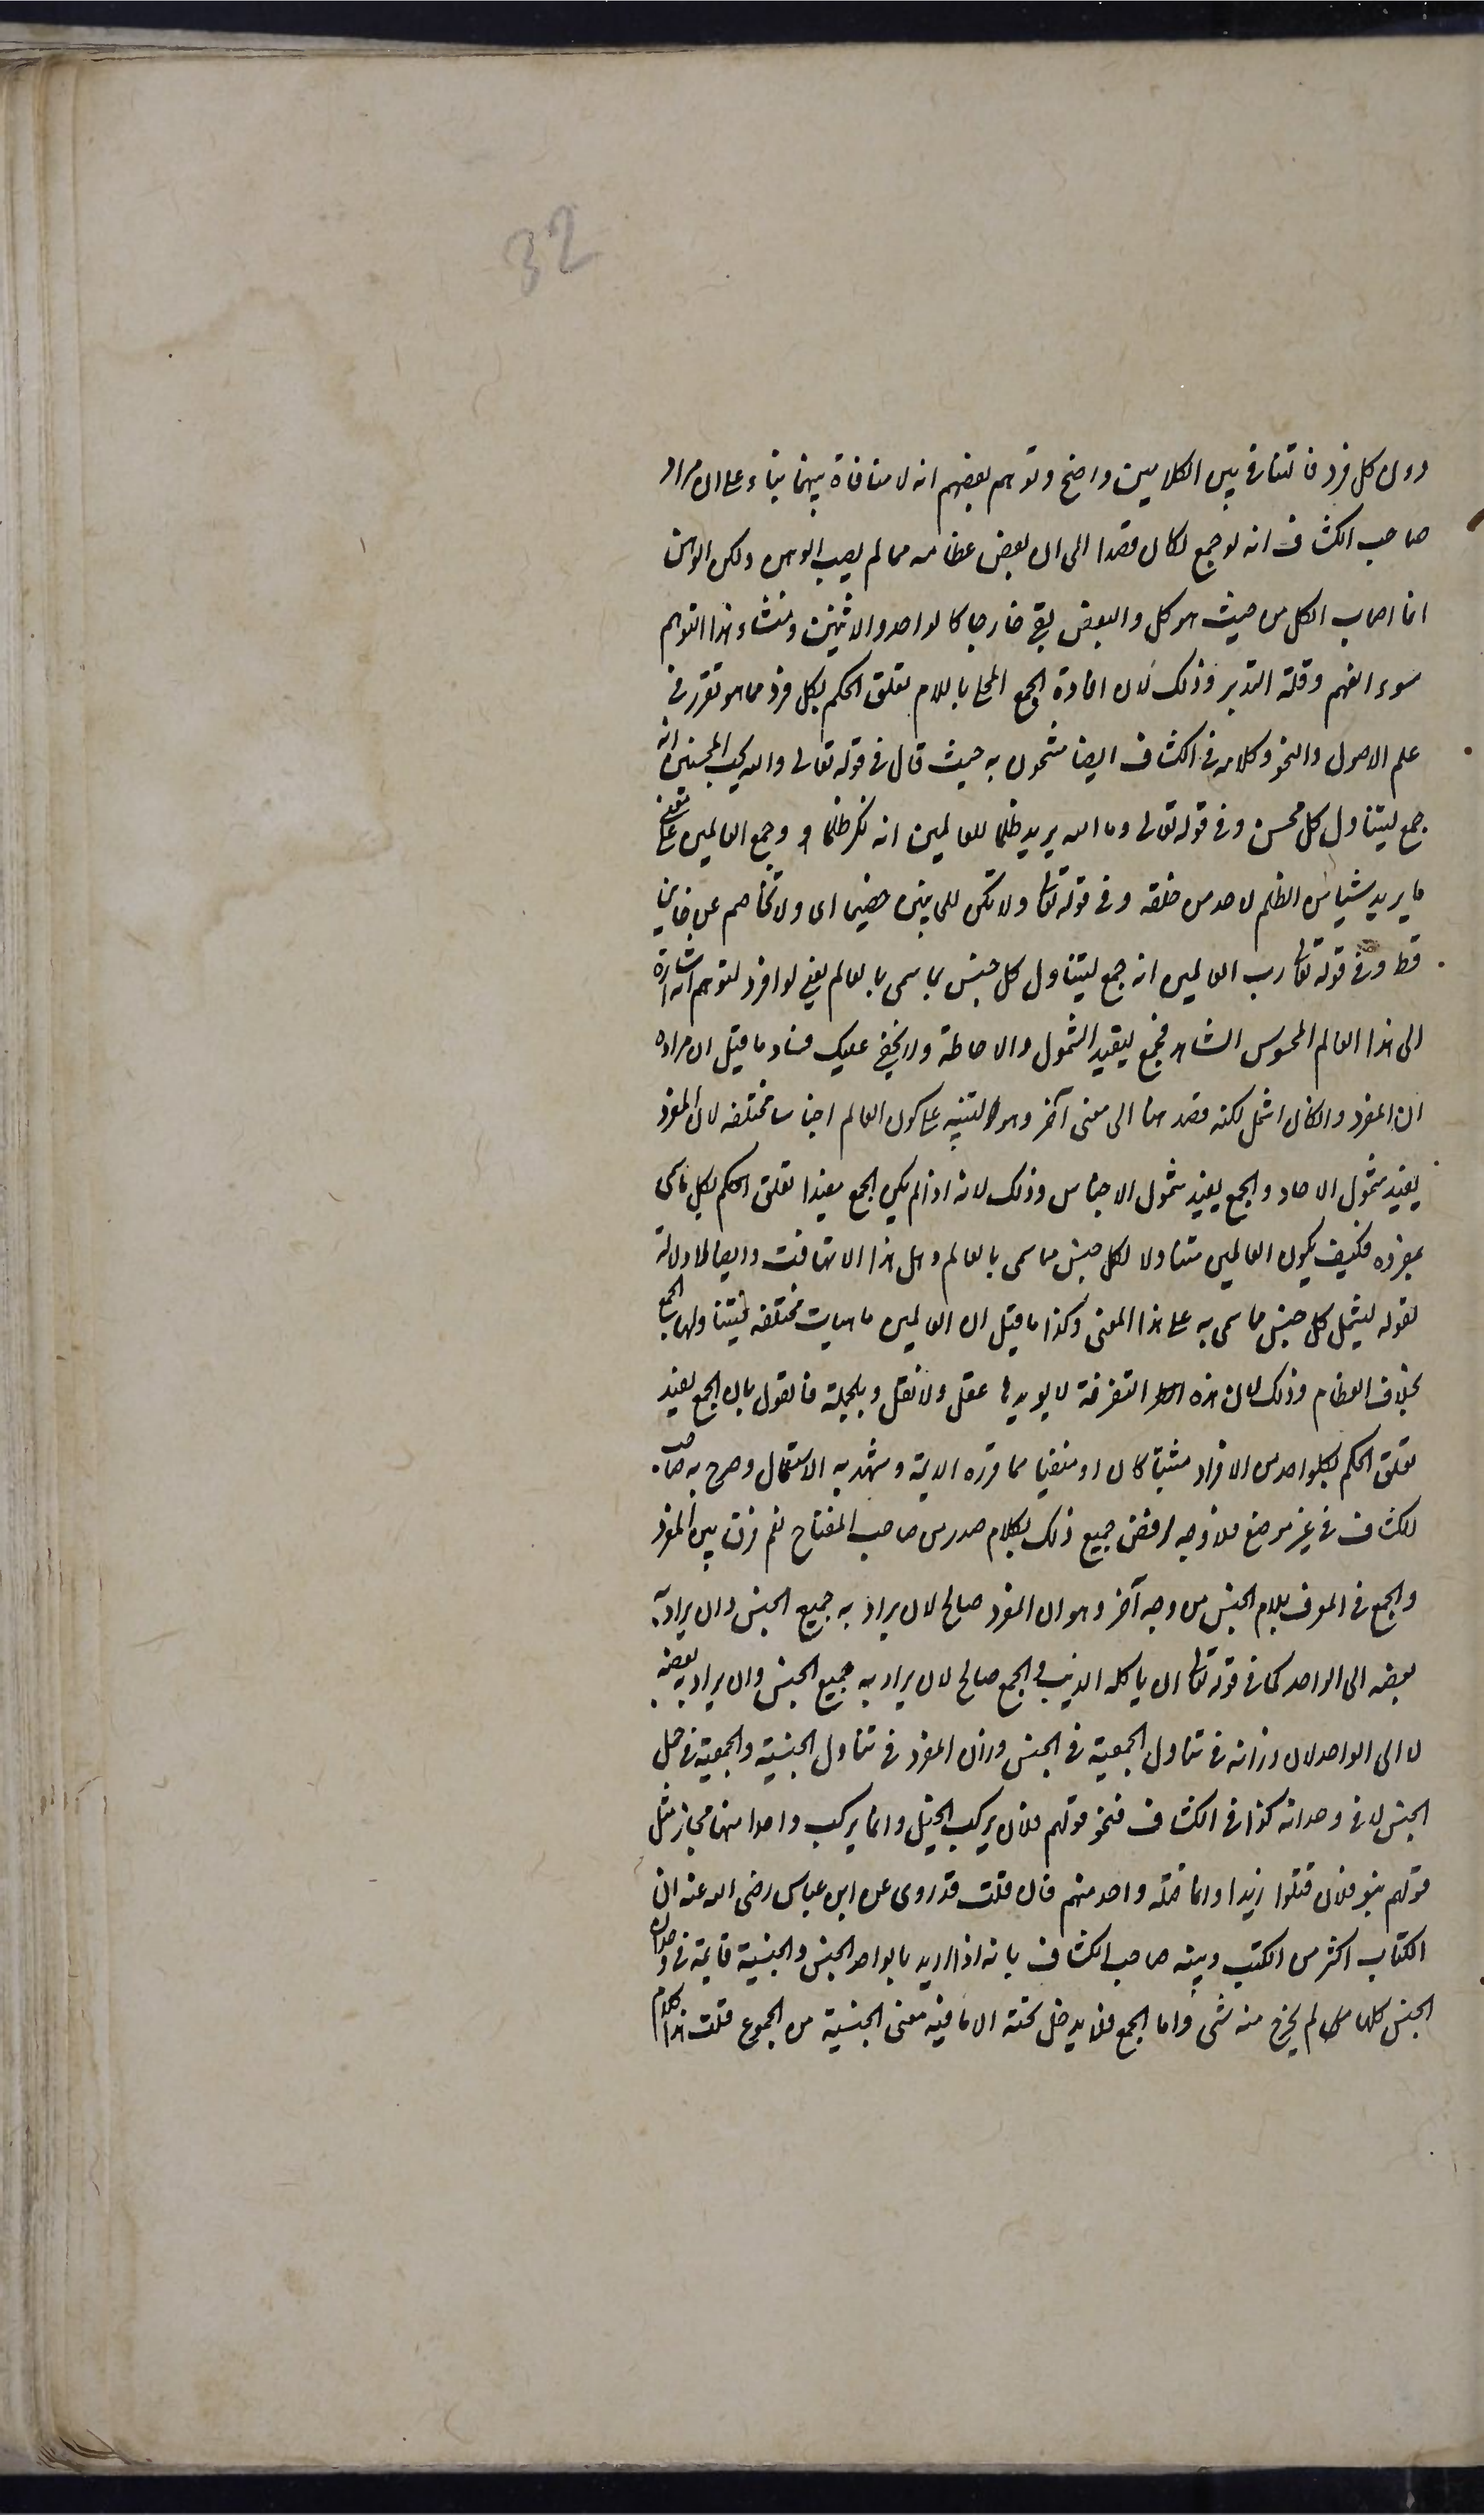 32
دون كل فرد فالتنافى بين الكلامين واضح وتوهم بعضهم انه لا منافاة بينهما بناء على ان مراد
صاحب الكشاف انه لو جمع لكان قصدا الى ان بعض عظامه مما لم يصبه الوهن ولكن الوهن
انما اصاب الكل من حيث هو كل والبعض بقى خارجا كالواحد والاثنين ومنشاء هذا التوهم
سوء الفهم وقلة التدبر وذلك لان افادة الجمع المحلى باللام تعلق الحكم بكل فرد مما هو تقرر فى
علم الاصول والنحو وكلامه فى الكشاف ايضا مشحون به حيث قال فى قوله تعالى والله يحب المحسنين انه
جمع ليتناول كل محسن وفى قوله تعالى وما الله يريد ظلما للعالمين انه نكر ظلما و وجمع العالمين على معنى
ما يريد شيئا من الظلم لاحد من خلقه وفى قوله تعالى ولا تكن للخاينين خصيما اى ولا تخاصم عن خاين
قط وفى قوله تعالى رب العالمين انه جمع ليتناول كل جنس مما سمى بالعالم يعنى لو افرد لتوهم انه اشارة
الى هذا العالم المحسوس المشاهد فجمع ليفيد الشمول والاحاطة ولا يخفى عليك فساد ما قيل ان مراده
ان المفرد وان كان اشمل لكنه قصد هنا الى معنى آخر وهو التنبيه على كون العالم اجناسا مختلفه لان المفرد
يفيد شمول الاحاد والجمع يفيد شمول الاجناس وذلك لانه اذا لم يكن الجمع مفيدا تعلق الحكم بكل ما سمى
بمفرده فكيف يكون العالمين متناولا لكل جنس مما سمى بالعالم وهل هذا الا تهافت وايضا لا دلالة
لقوله ليشمل كل جنس مما سمى به على هذا المعنى وكذا ما قيل ان العالمين ماهيات مختلفه فيتناولها الجمع
بخلاف العظام وذلك لان هذه التفرقة لا يويدها عقل ولا نقل وبالجملة فالقول بان الجمع يفيد
تعلق الحكم بكل واحد من الافراد مثبتا كان او منفيا مما قرره الايمة وشهد به الاستعمال وصرح به صاحب
الكشاف فى غير موضع فلا وجه لرفض جميع ذلك بكلام صدر من صاحب المفتاح نعم فرق بين المفرد
والجمع فى المعرف بلام الجنس من وجه آخر وهو ان المفرد صالح لان يراد به جميع الجنس وان يراد به
بعضه الى الواحد كما فى قوله تعالى ان ياكله الذيب والجمع صالح لان يراد به جميع الجنس وان يراد به بعضه
لا الى الواحد لان وزانه فى تناول الجمعية فى الجنس وزان المفرد فى تناول الجنسية والجمعية فى جمل
الجنس لا فى وحدانه كذا فى الكشاف فنحو قولهم فلان يركب الخيل وانما يركب واحدا منها مجاز مثل
قولهم بنو فلان قتلوا زيدا وانما قتله واحد منهم فان قلت قد روى عن ابن عباس رضى الله عنه ان
الكتاب اكثر من الكتب وبينه صاحب الكشاف بانه اذا اريد بالواحد الجنس والجنسية قايمة فى وحدان
الجنس كلها لم يخرج منه شىء واما الجمع فلا يدخل تحته الا ما فيه معنى الجنسية من الجموع قلت هذا كلام